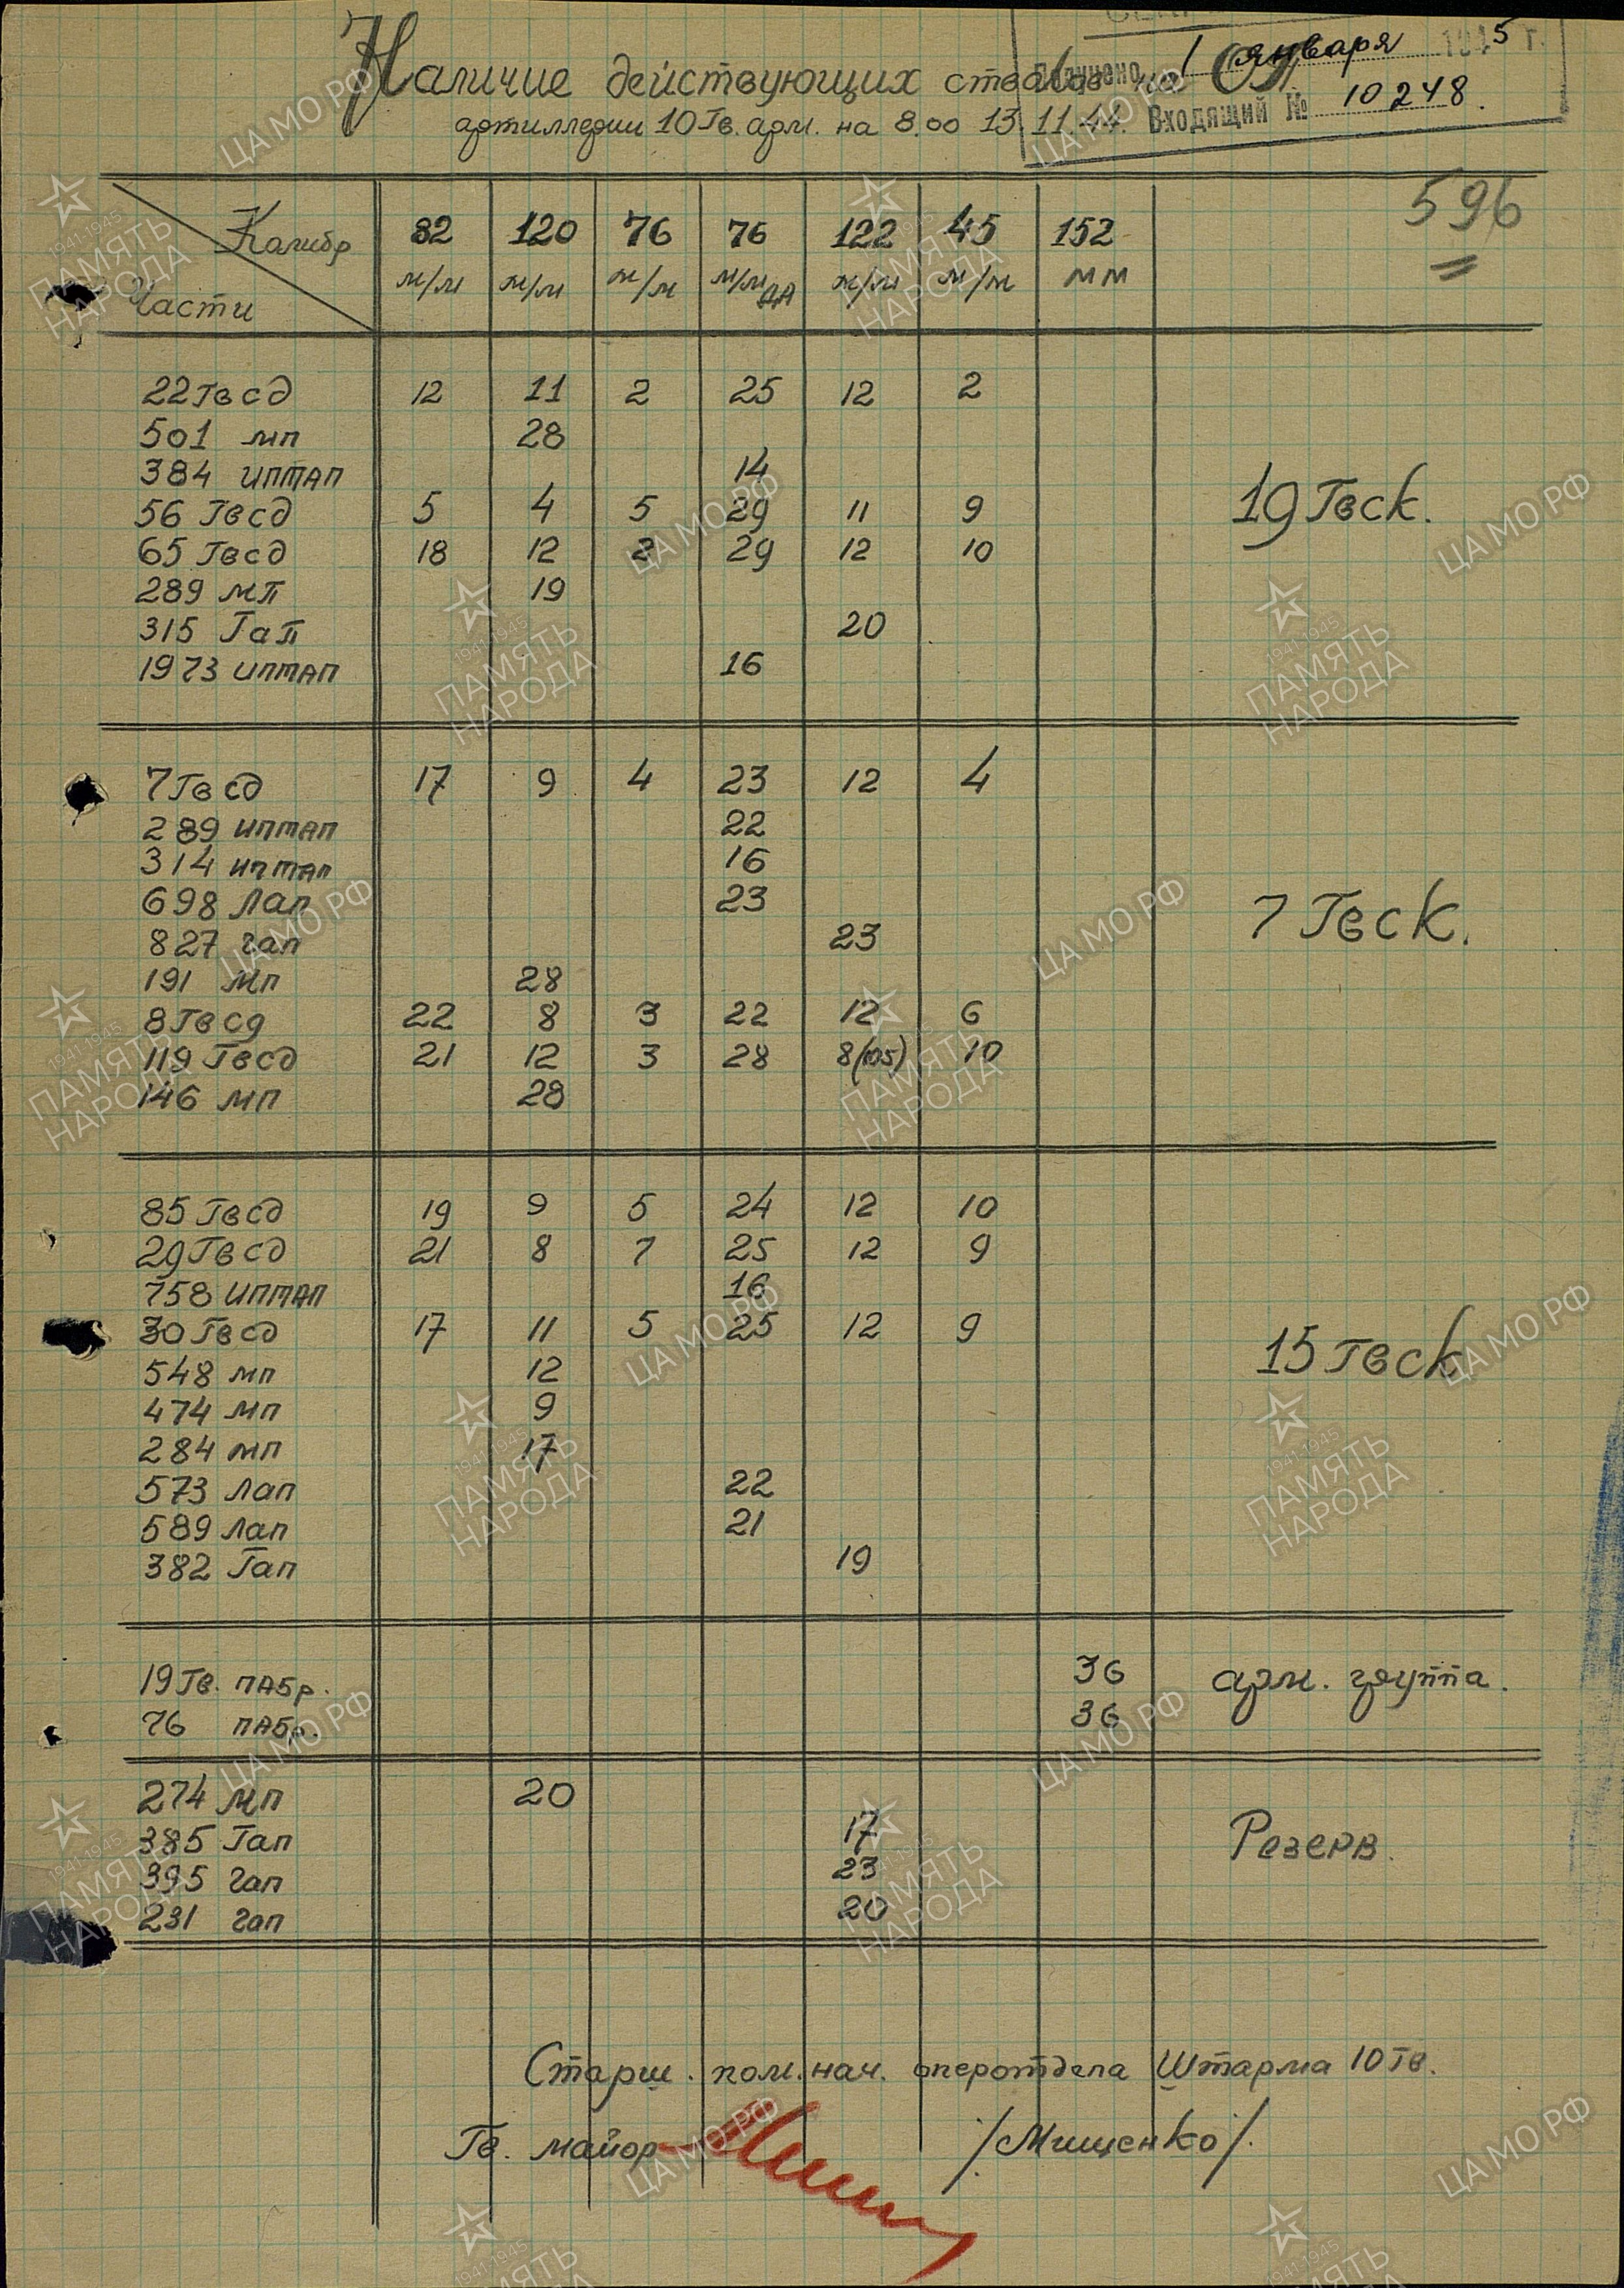 Наличие действующих стволов на ОП
артиллерии 10 Гв. арм. на 8.00 13.11.44.
Получено 1 января 1945 г.
Входящий № 10248.
596
Калибр
Части
82 м/м 120 м/м 76 м/м 76 м/м ДА 122 м/м 45 м/м 152 мм
22 Гв сд 12 11 2 25 12 2
501 мп 28
384 иптап 14
56 Гв сд 5 4 5 29 11 9
19 Гвск.
65 Гв сд 18 12 2 29 12 10
289 мп 19
315 Гап 20
1973 иптап 16
7 Гв сд 17 9 4 23 12 4
289 иптап 22
314 иптап 16
698 Лап 23
7 Гвск.
827 гап 23
191 мп 28
8 Гв сд 22 8 3 22 12 6
119 Гвсд 21 12 3 28 8(105) 10
146 мп 28
85 Гвсд 19 9 5 24 12 10
29 Гв сд 21 8 7 25 12 9
758 иптап 16
30 Гвсд 17 11 5 25 12 9
15 Гвск
548 мп 12
474 мп 9
284 мп 17
573 Лап 22
589 Лап 21
382 Гап 19
19 Гв. ПАбр. 36
арм. группа.
76 ПАбр. 36
274 мп 20
385 Гап 17
Резерв.
395 гап 23
231 гап 20
Старш. пом. нач. оперотдела Штарма 10 Гв.
Гв. майор /Мищенко/.
ЦАМО РФ
1941-1945
ПАМЯТЬ
НАРОДА